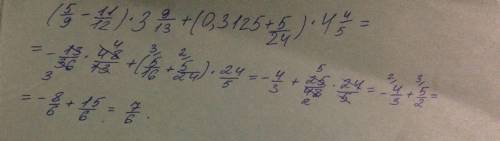 (5/9 - 11/12) · 3 9/13 + (0,3125 + 5/24) · 4 4/5 =
= - 13/36 · 48/13 + (5/16 + 5/24) · 24/5 = - 4/3 + 25/48 · 24/5 = - 4/3 + 5/2 =
= - 8/6 + 15/6 = 7/6.